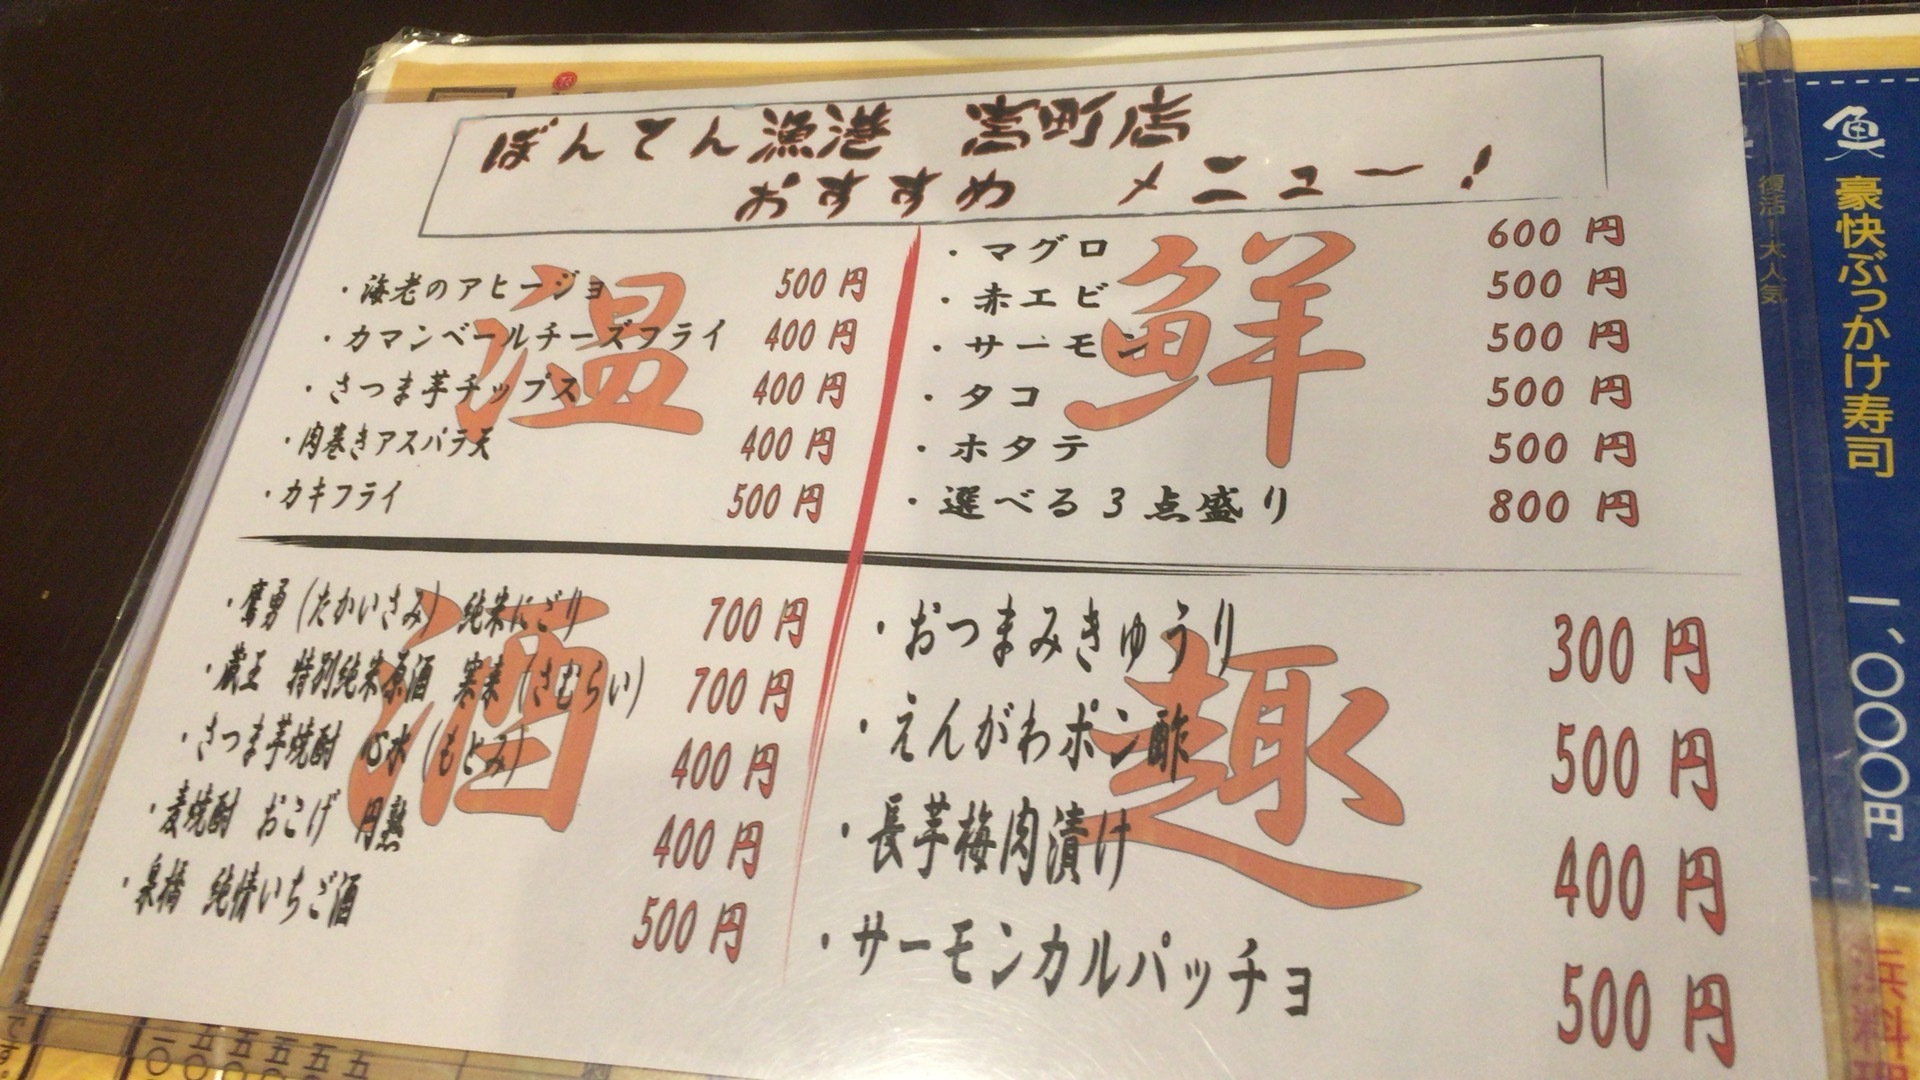 ぼんてん漁港 宮町店
おすすめ メニュー！
温
・海老のアヒージョ 500円
・カマンベールチーズフライ 400円
・さつま芋チップス 400円
・肉巻きアスパラ天 400円
・カキフライ 500円
鮮
・マグロ 600円
・赤エビ 500円
・サーモン 500円
・タコ 500円
・ホタテ 500円
・選べる3点盛り 800円
酒
・鷹勇(たかいさみ) 純米にごり 700円
・蔵王 特別純米原酒 寒来(さむらい) 700円
・さつま芋焼酎 心水(もとみ) 400円
・麦焼酎 おこげ 円熟 400円
・泉橋 純情いちご酒 500円
趣
・おつまみきゅうり 300円
・えんがわポン酢 500円
・長芋梅肉漬け 400円
・サーモンカルパッチョ 500円
復活！大人気
魚
豪快ぶっかけ寿司
一、〇〇〇円